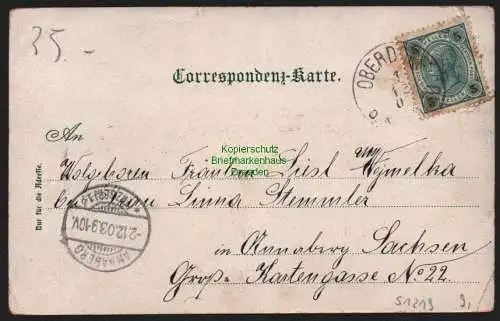 35.-
OBERD
5 HELLER 5
Correspondenz-Karte.
Kopierschutz
Briefmarkenhaus
Dresden
An
Wolgeboren Fräulein Liesl Wymelka
bei Frau Linna Stemmler
in Annaberg Sachsen
Groß-Kartengasse No 22.
Nur für die Adresse.
ANNABERG
-2.12.03.9-10V.
(ERZGEB.)
S1219
9,